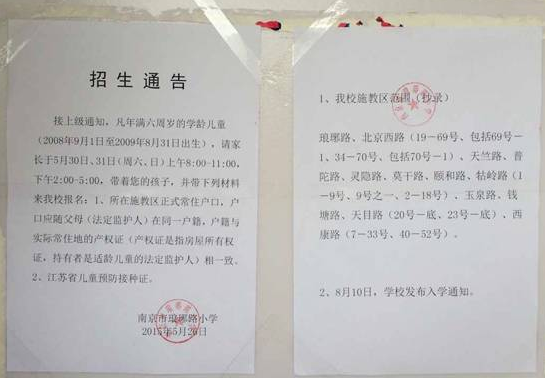 招生通告
接上级通知，凡年满六周岁的学龄儿童
（2008年9月1日至2009年8月31日出生），请家
长于5月30日、31日（周六、日）上午8:00-11:00，
下午2:00-5:00，带着您的孩子，并带下列材料
来我校报名：1、所在施教区正式常住户口，户
口应随父母（法定监护人）在同一户籍，户籍与
实际常住地的产权证（产权证是指房屋所有权
证，持有者是适龄儿童的法定监护人）相一致。
2、江苏省儿童预防接种证。
南京市琅琊路小学
2015年5月26日
1、我校施教区范围（抄录）
琅琊路、北京西路（19－69号、包括69号－
1、34－70号、包括70号－1）、天竺路、普
陀路、灵隐路、莫干路、颐和路、牯岭路（1
－9号、9号之一、2－18号）、玉泉路、钱
塘路、天目路（20号－底、23号－底）、西
康路（7－33号、40－52号）。
2、8月10日，学校发布入学通知。